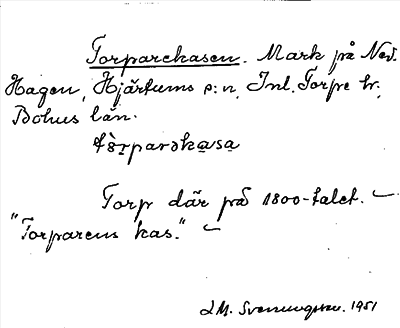 Torparekasen. Mark på Ned.
Hagen, Hjärtums s:n, Inl. Torpe hr,
Bohus län.
tòrparəkasa
Torp där på 1800-talet.
"Torparens kas."
J.M. Svenungsson. 1951